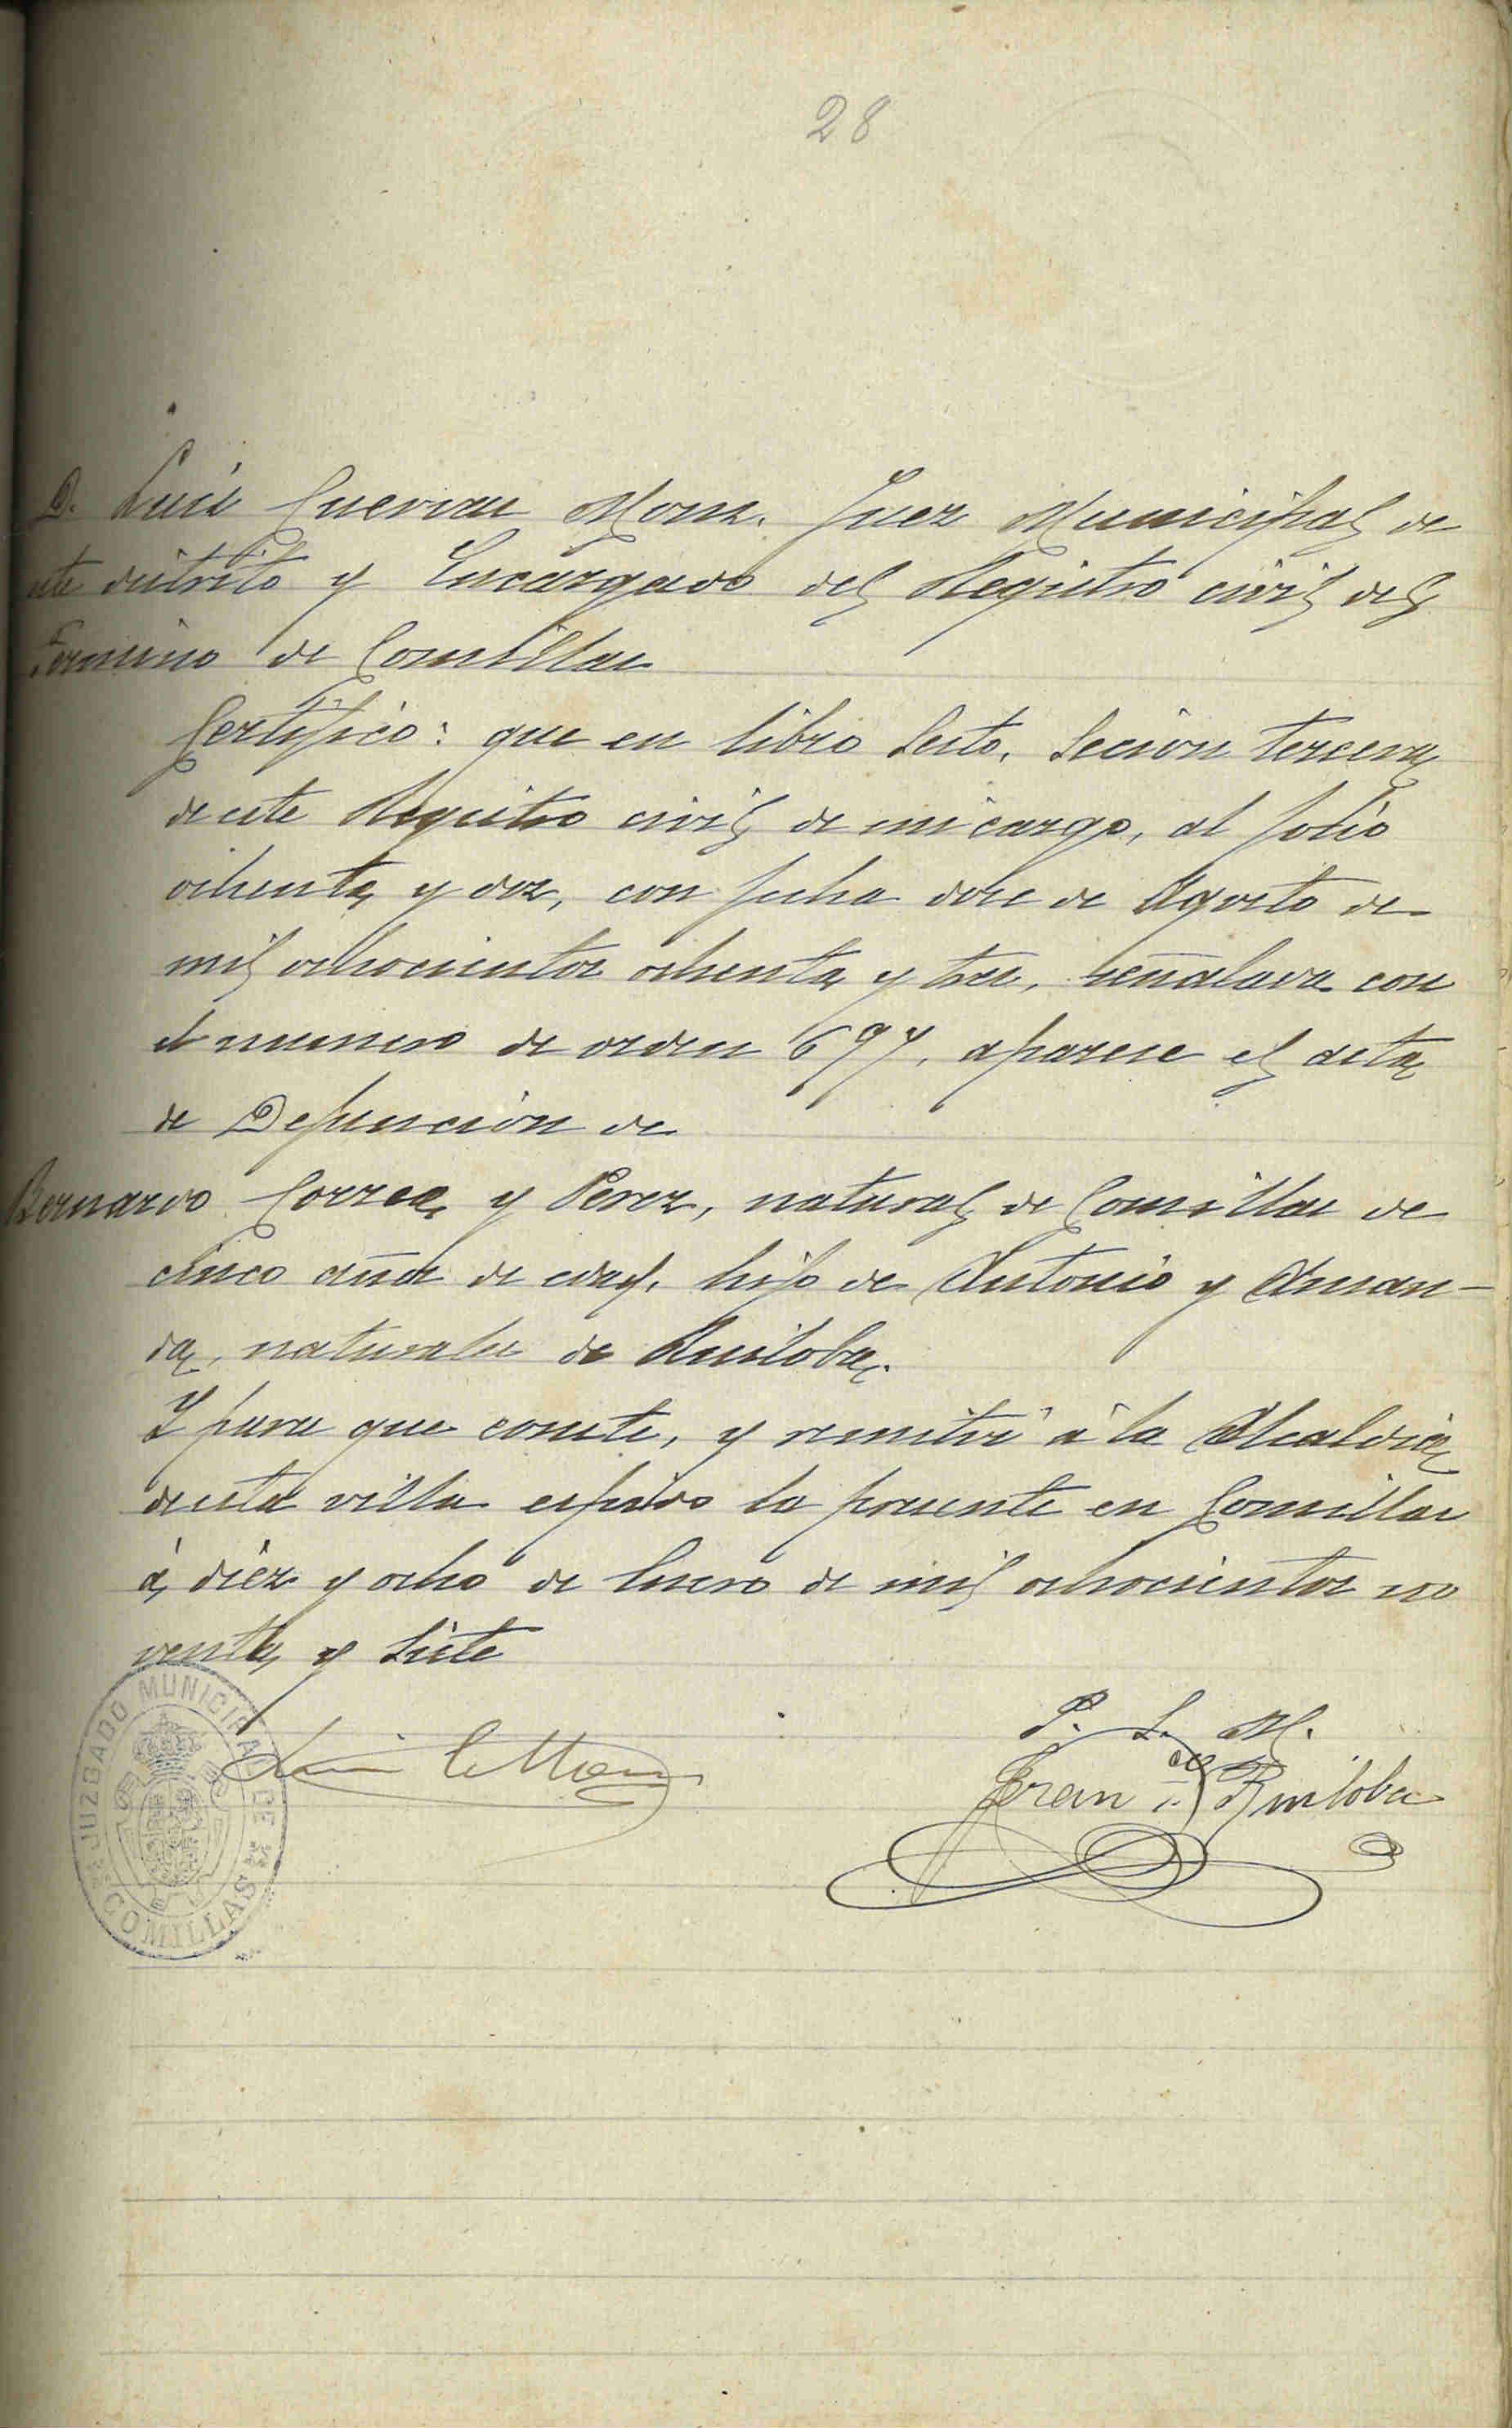 28
D. Luis Cuevas Mons. Juez Municipal de
este distrito y Encargado del Registro civil del
Termino de Comillas
Certifico: que en libro Sesto, Secion tercera
de este Registro civil de mi cargo, al folio
ochenta y dos, con fecha doce de Agosto de
mil ochocientos ochenta y tres, señalada con
el numero de orden 697, aparese el acta
de Defuncion de
Bernardo Correa y Perez, natural de Comillas de
cinco años de edad, hijo de Antonio y Aman-
da, naturales de Ruiloba.
Y para que conste, y remitir á la Alcaldia
de esta villa espido la presente en Comillas
á diez y ocho de Enero de mil ochocientos no
venta y siete
JUZGADO MUNICIPAL DE COMILLAS
Luis
P. S. M.
Fran.co Ruiloba